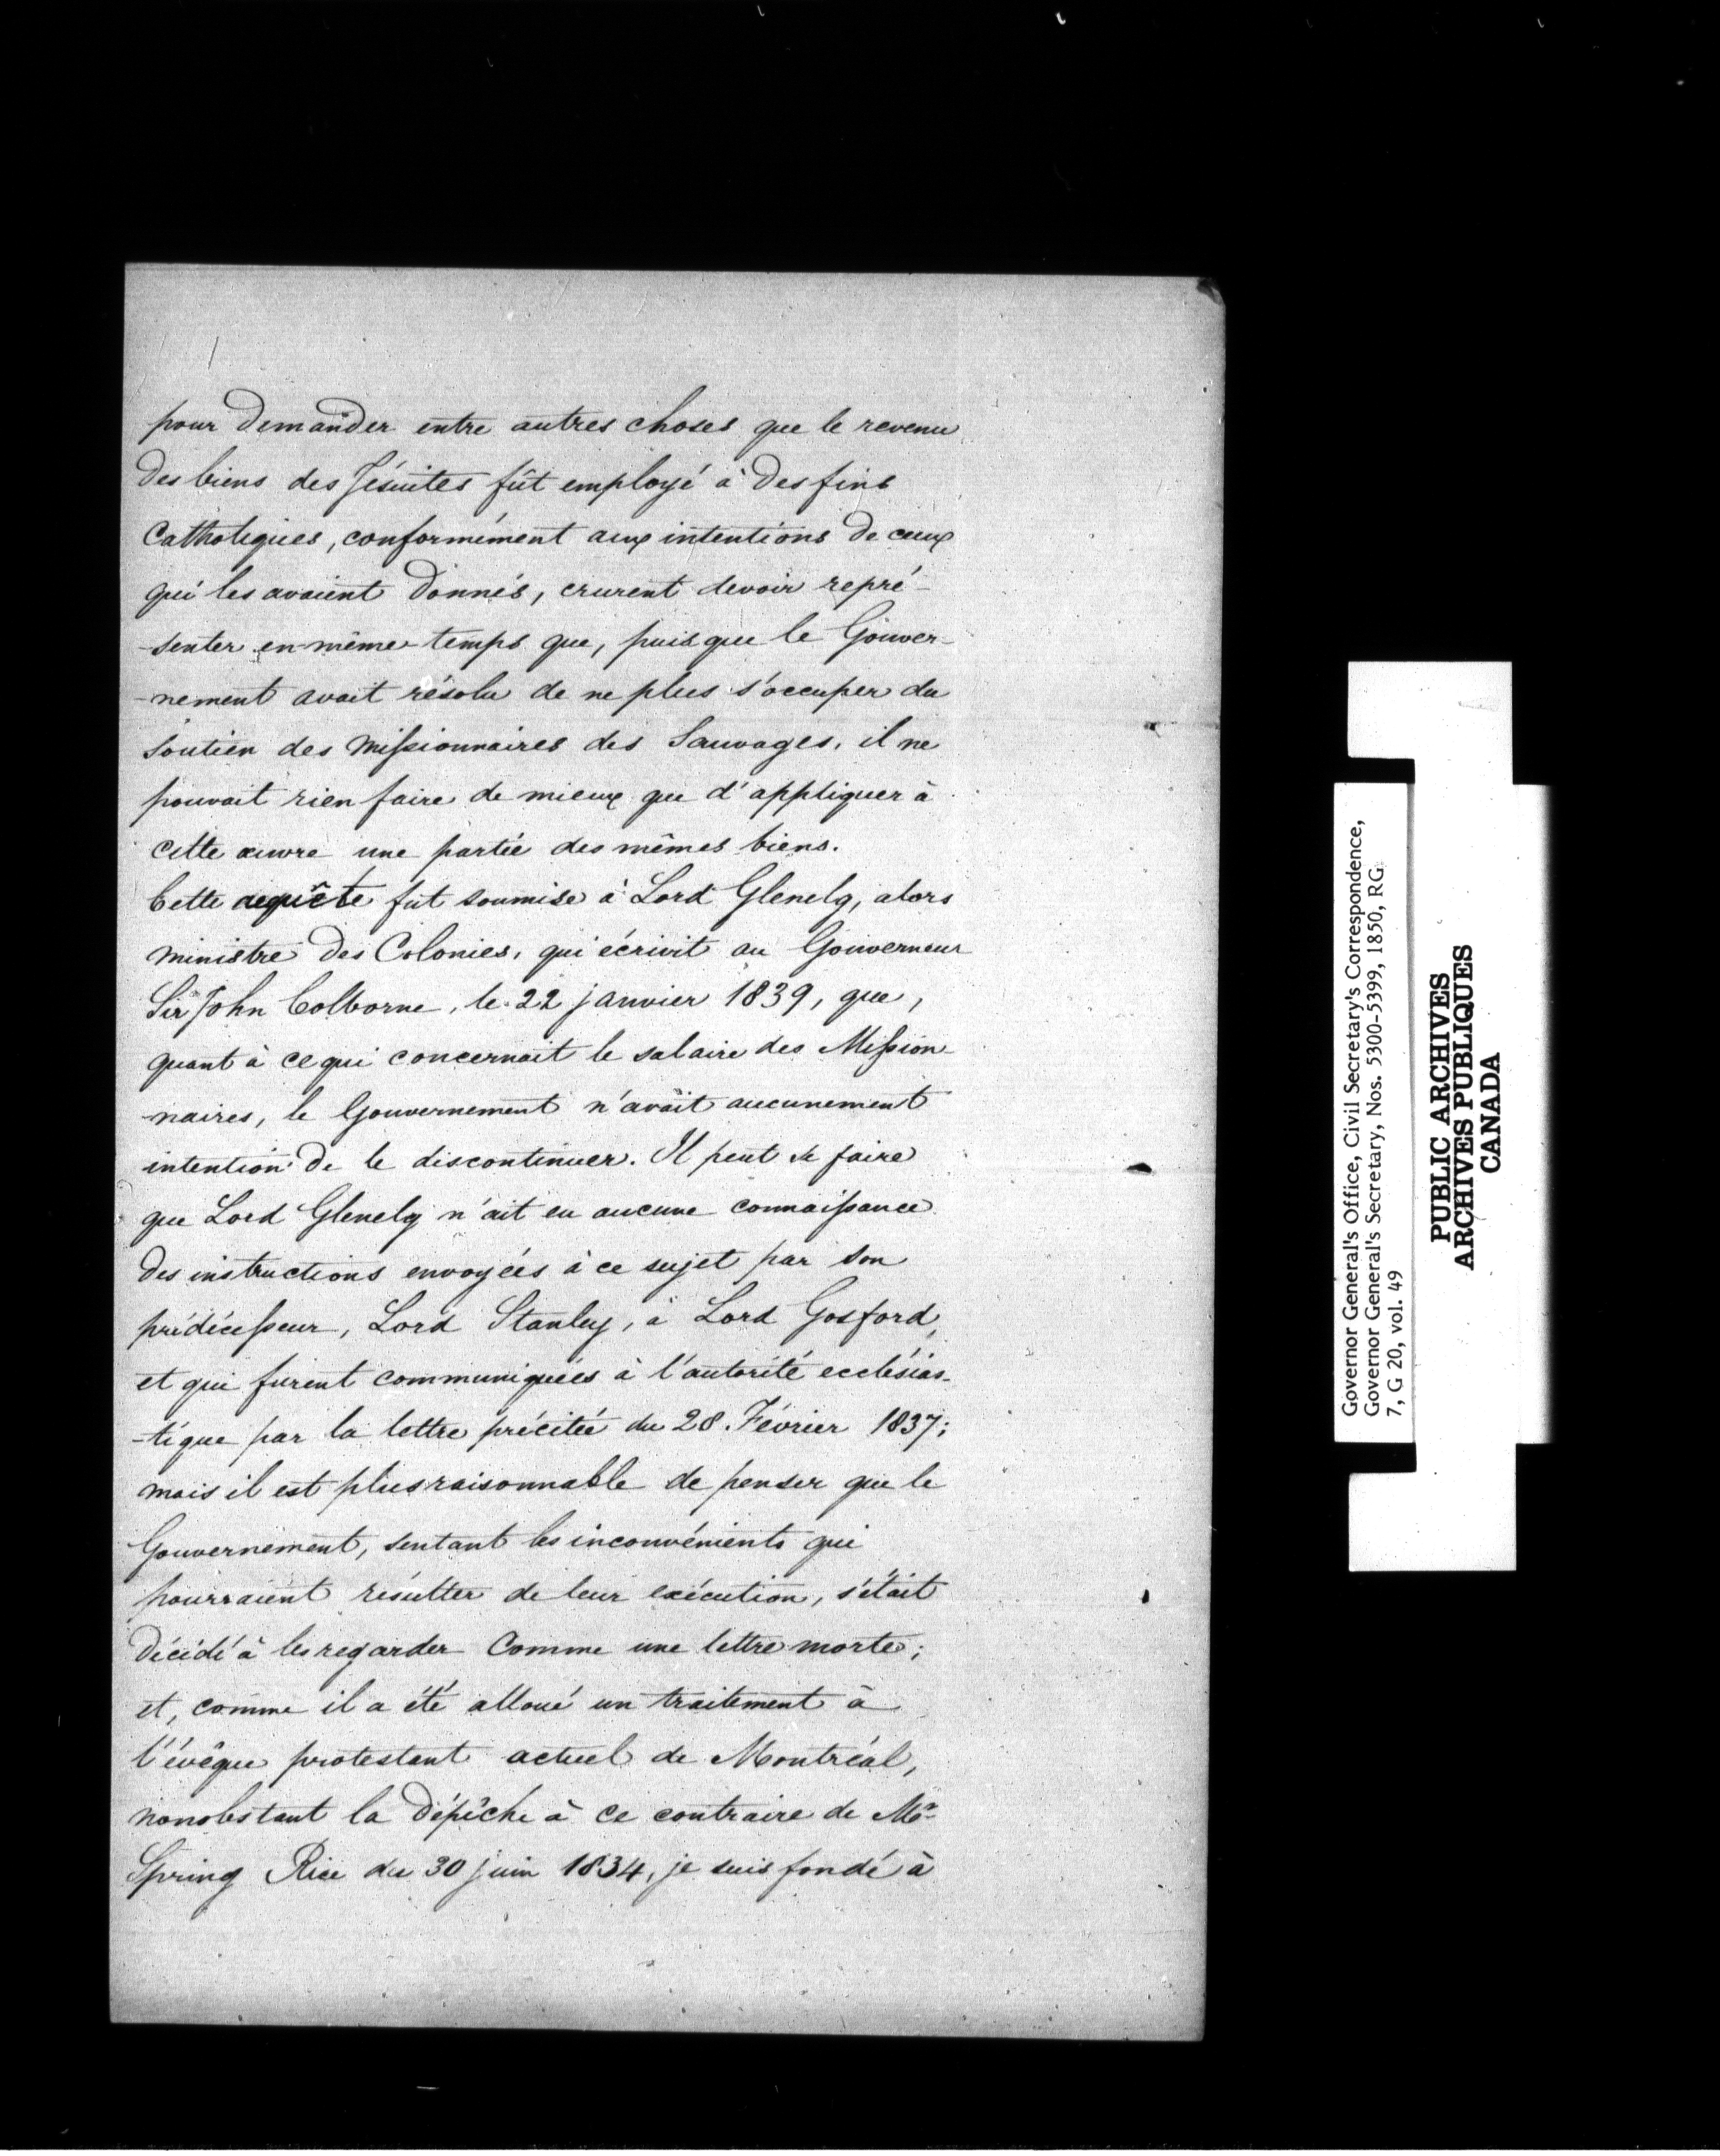 pour demander entre autres choses que le revenu
des biens des Jésuites fût employé à des fins
Catholiques, conformément aux intentions de ceux
qui les avaient donnés, crurent devoir repré-
-senter en même temps que, puisque le Gouver-
-nement avait résolu de ne plus s'occuper du
soutien des Missionnaires des Sauvages, il ne
pouvait rien faire de mieux que d'appliquer à
cette œuvre une partie des mêmes biens.
Cette requête fut soumise à Lord Glenelg, alors
ministre des Colonies, qui écrivit au Gouverneur
Sir John Colborne, le 22 janvier 1839, que,
quant à ce qui concernait le salaire des Mission-
-naires, le Gouvernement n'avait aucunement
intention de le discontinuer. Il peut se faire
que Lord Glenelg n'ait eu aucune connaissance
des instructions envoyées à ce sujet par son
prédécesseur, Lord Stanley, à Lord Gosford,
et qui furent communiquées à l'autorité ecclésias-
-tique par la lettre précitée du 28. Février 1837;
mais il est plus raisonnable de penser que le
Gouvernement, sentant les inconvénients qui
pourraient résulter de leur exécution, s'était
décidé à les regarder comme une lettre morte;
et, comme il a été alloué un traitement à
l'évêque protestant actuel de Montréal,
nonobstant la dépêche à ce contraire de Mr
Spring Rice du 30 juin 1834, je suis fondé à
Governor General's Office, Civil Secretary's Correspondence,
Governor General's Secretary, Nos. 5300-5399, 1850, RG
7, G 20, vol. 49
PUBLIC ARCHIVES
ARCHIVES PUBLIQUES
CANADA